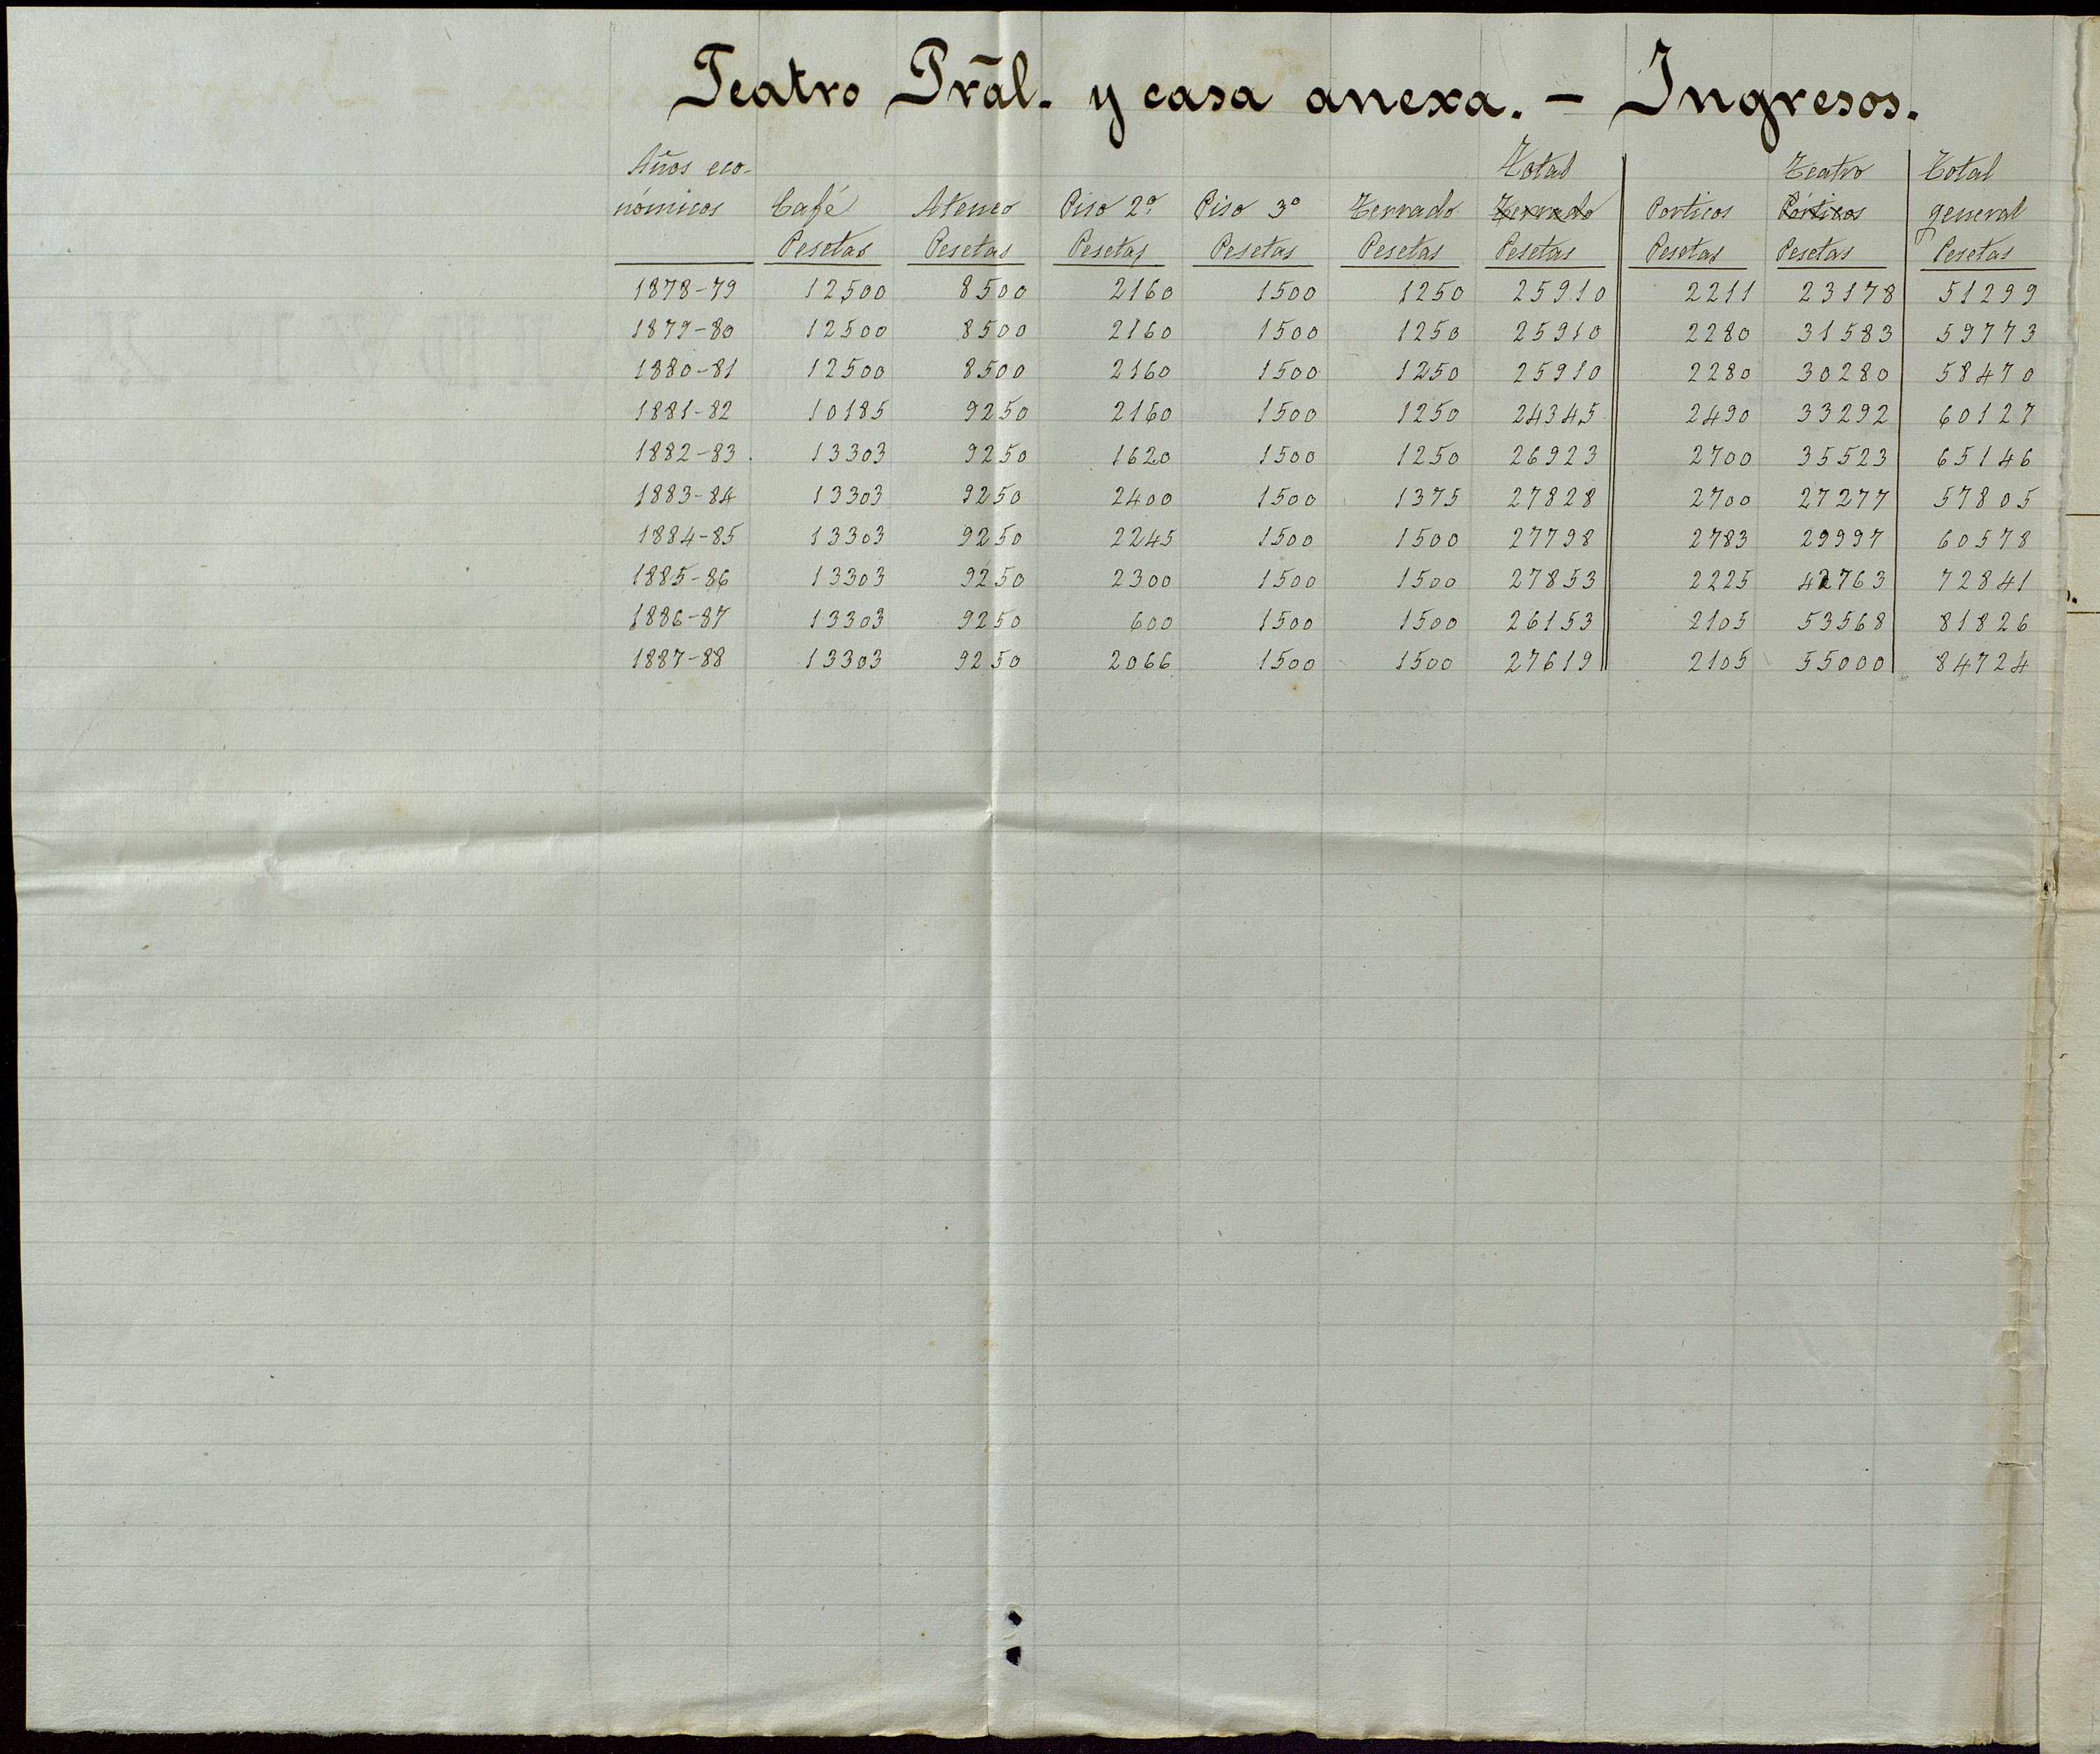 Teatro Prāl. y casa anexa. - Ingresos.
Años eco- Total Teatro Total
nómicos Café Ateneo Piso 2º Piso 3º Terrado Terrado Porticos Pórticos general
Pesetas Pesetas Pesetas Pesetas Pesetas Pesetas Pesetas Pesetas Pesetas
1878-79 12500 8500 2160 1500 1250 25910 2211 23178 51299
1879-80 12500 8500 2160 1500 1250 25910 2280 31583 59773
1880-81 12500 8500 2160 1500 1250 25910 2280 30280 58470
1881-82 10185 9250 2160 1500 1250 24345 2490 33292 60127
1882-83 13303 9250 1620 1500 1250 26923 2700 35523 65146
1883-84 13303 9250 2400 1500 1375 27828 2700 27277 57805
1884-85 13303 9250 2245 1500 1500 27798 2783 29997 60578
1885-86 13303 9250 2300 1500 1500 27853 2225 42763 72841
1886-87 13303 9250 600 1500 1500 26153 2105 53568 81826
1887-88 13303 9250 2066 1500 1500 27619 2105 55000 84724